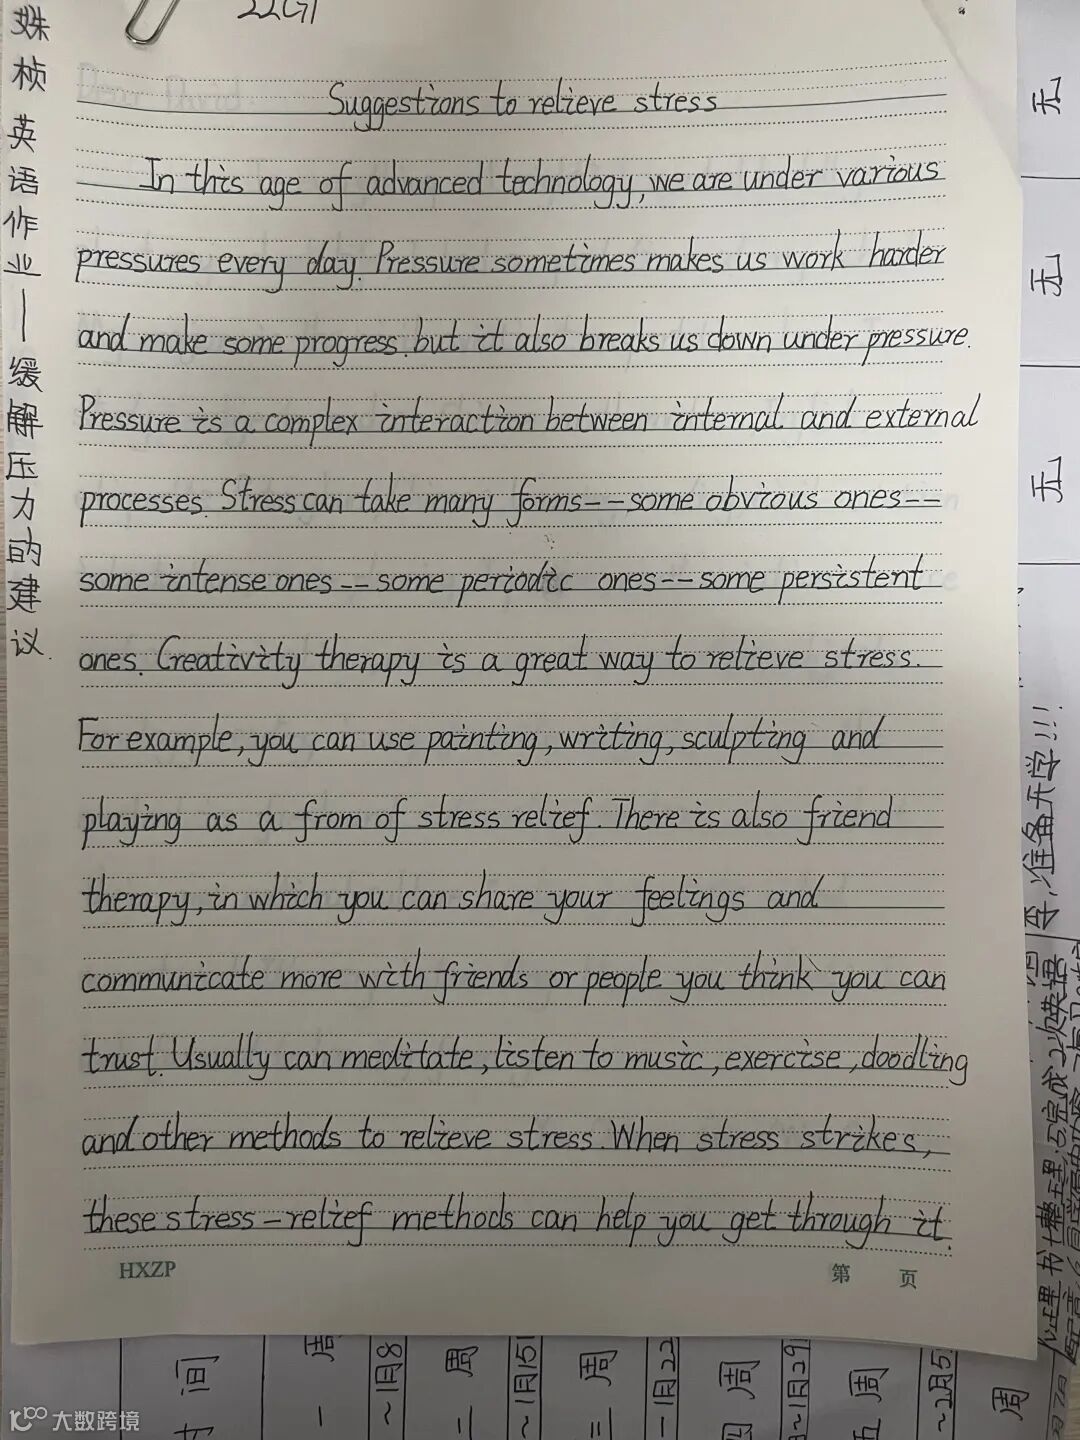 22G1
姝桢英语作业—缓解压力的建议.
Suggestions to relieve stress
In this age of advanced technology, we are under various
pressures every day. Pressure sometimes makes us work harder
and make some progress. but it also breaks us down under pressure.
Pressure is a complex interaction between internal and external
processes. Stress can take many forms--some obvious ones--
some intense ones--some periodic ones--some persistent
ones. Creativity therapy is a great way to relieve stress.
For example, you can use painting, writing, sculpting and
playing as a from of stress relief. There is also friend
therapy, in which you can share your feelings and
communicate more with friends or people you think you can
trust. Usually can meditate, listen to music, exercise, doodling
and other methods to relieve stress. When stress strikes,
these stress-relief methods can help you get through it.
HXZP 第 页
无
无
无
准备开学!!!
时间
一周
~1月8
二周
~1月15
三周
~1月22
四周
~1月29
五周
~2月5
周
大数跨境